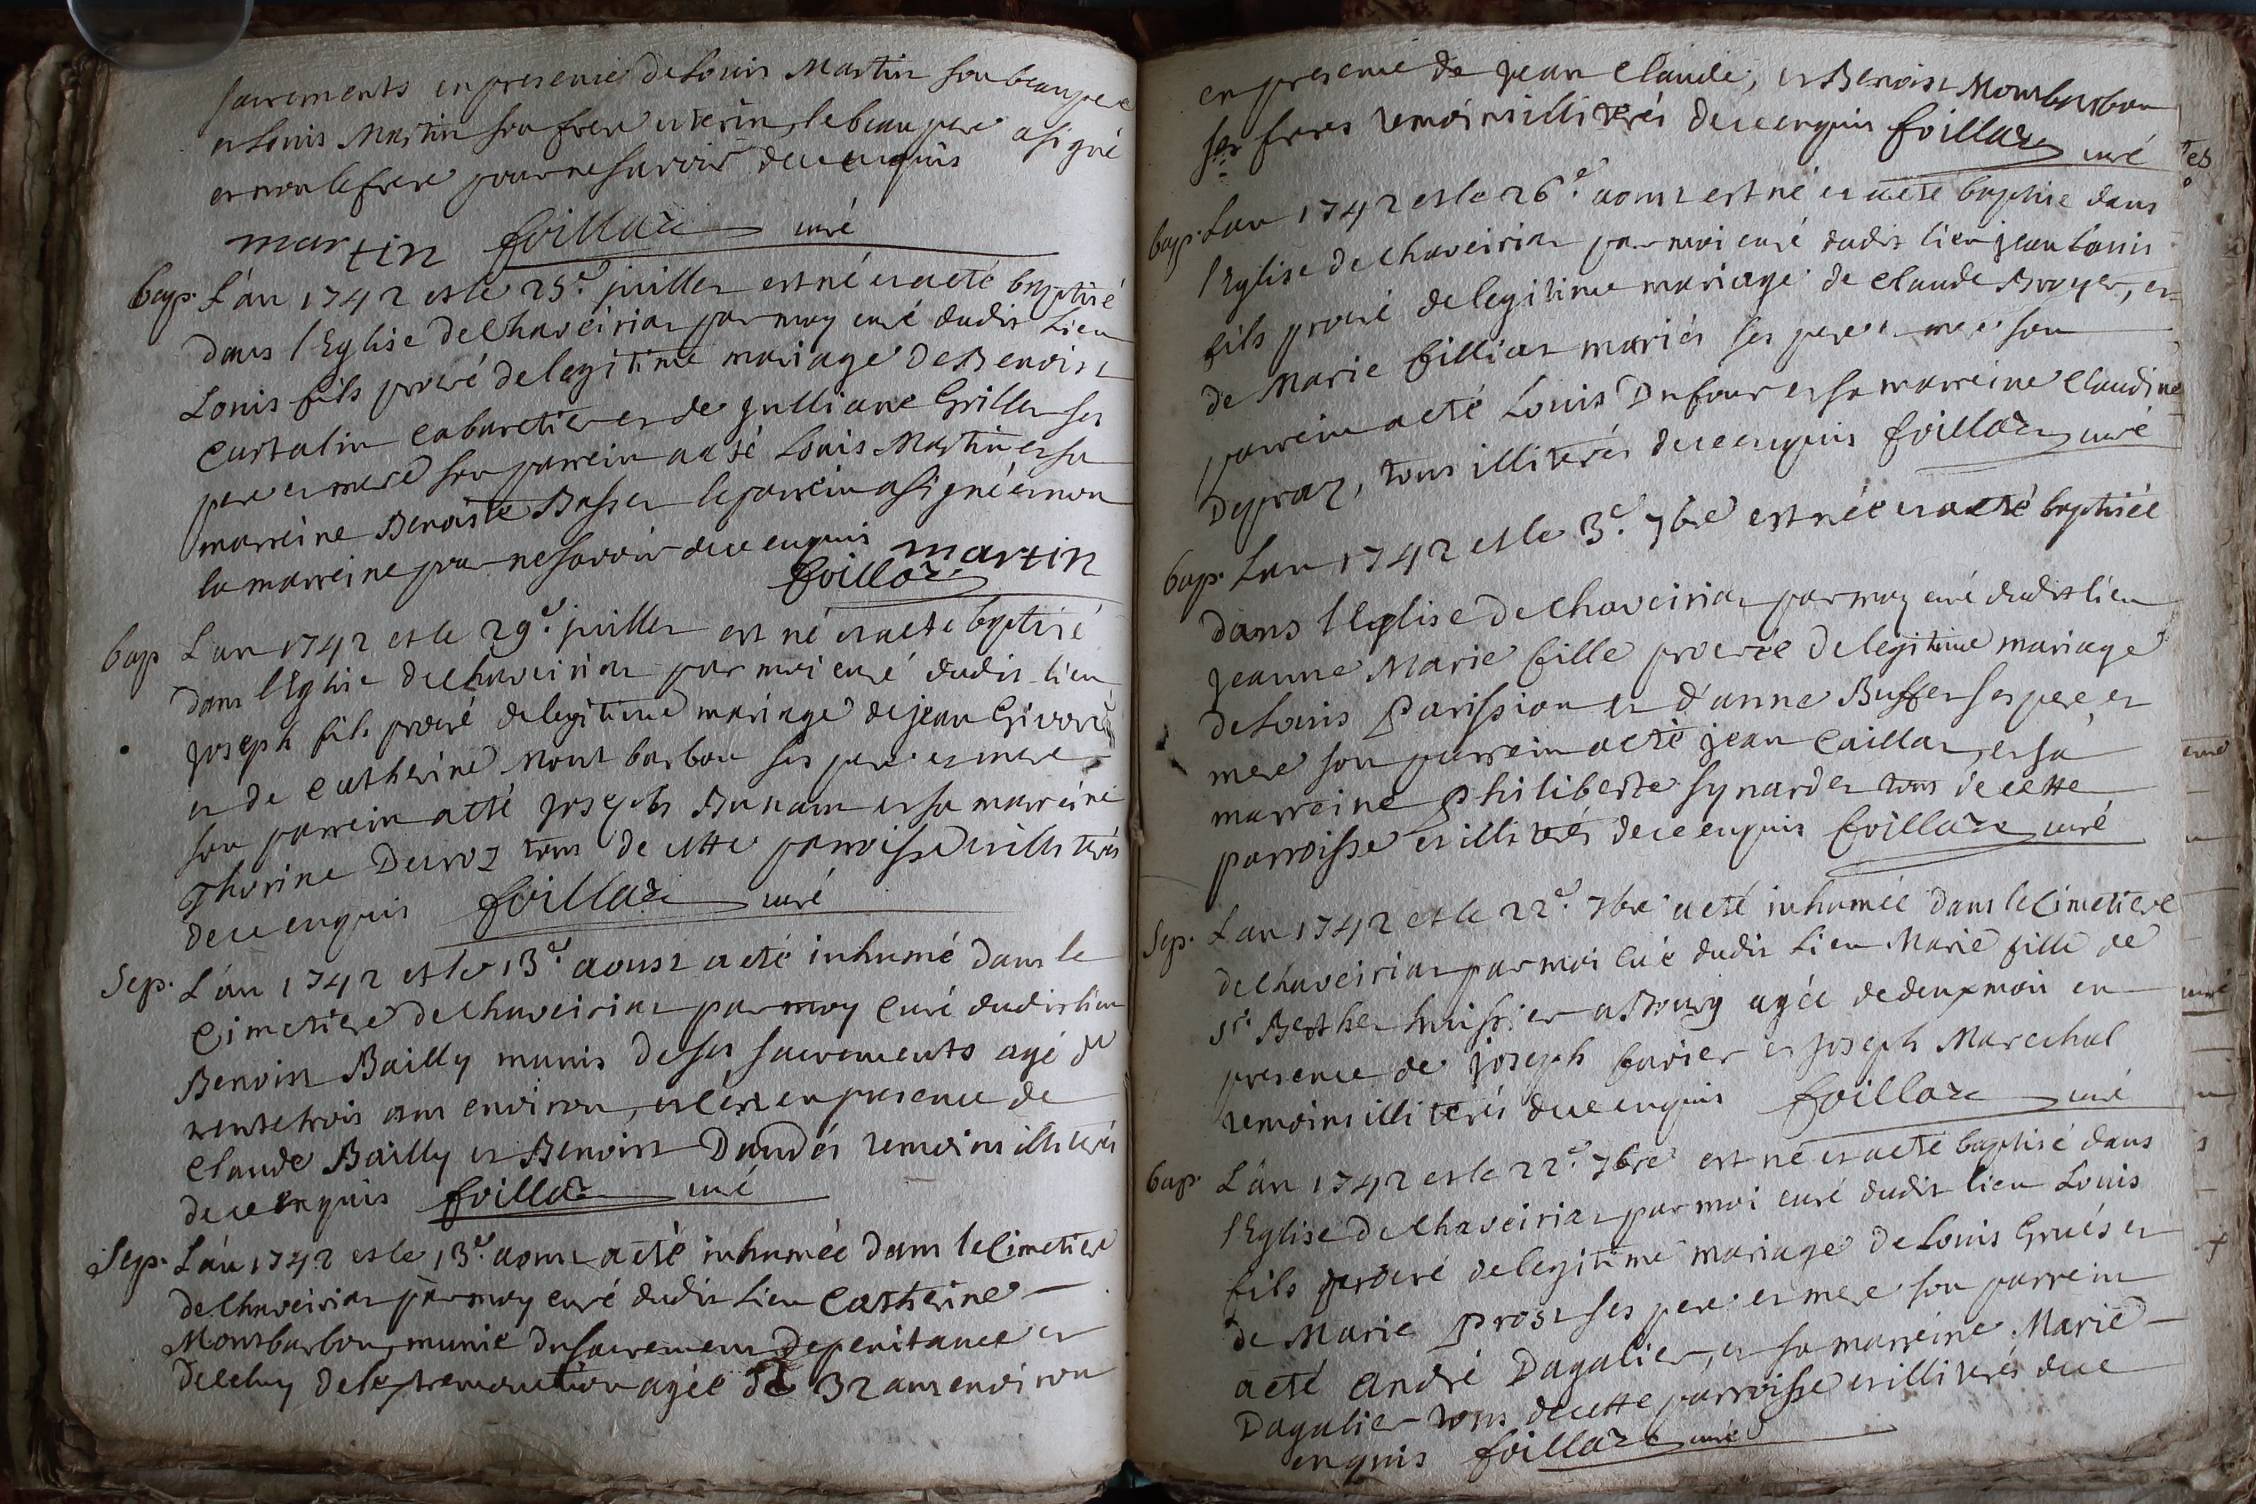 sacrements en presence de Louis Martin son beau pere
et Louis Martin son frere uterin, le beau pere a signé
et non le frere pour ne savoir de ce enquis
martin foillaz curé
bap. L'an 1742 et le 25e juillet est né et a eté baptisé
dans l'Eglise de Chaveiriat par moy curé dudit Lieu
Louis fils procré de legitime mariage de Benoist
Curtalin cabaretier et de Julliane Grillet ses
pere et mere son parrein a eté Louis Martin et sa
marreine Benoiste Basset le parrein a signé et non
la marreine pour ne savoir de ce enquis martin
foillaz
bap L'an 1742 et le 29e juillet est né et a eté baptisé
dans l'Eglise de Chaveiriat par moi curé dudit lieu
joseph fils procré de legitime mariage de jean
et de Catherine Montbarbon ses pere et mere
son parrein a eté joseph et sa marreine
Thorine Decroz tous de cette parroisse et illiterés
de ce enquis foillaz curé
Sep. L'an 1742 et le 13e aoust a eté inhumé dans le
Cimetiere de Chaveiriat par moy Curé dudit lieu
Benoist Bailly munis de ses sacrements agé de
trente trois ans environ, et c'est en presence de
Claude Bailly et Benoist Dandés temoins illiterés
de ce enquis foillaz curé
Sep. L'an 1742 et le 13e aoust a eté inhumée dans le Cimetiere
de Chaveiriat par moy curé dudit Lieu Catherine
Montbarbon munie du sacrement de penitance et
de celuy de lextremonction agée de 32 ans environ
en presence de jean Claude, et Benoist Montbarbon
ses freres temoins illiterés de ce enquis foillaz curé
bap. L'an 1742 et le 26e aoust est né et a eté baptisé dans
l'Eglise de Chaveiriat par moi curé dudit lieu jean Louis
fils procré de legitime mariage de Claude Broyer, et
de Marie filliat mariés ses pere et mere son
parrein a eté Louis Dufour et sa marreine Claudine
Depraz, tous illiterés de ce enquis foillaz curé
bap. L'an 1742 et le 3e 7bre est née et a eté baptisée
dans l'Eglise de Chaveiriat par moy curé dudit lieu
jeanne Marie fille procréé de legitime mariage
de Louis Parission et d'anne Buffet ses pere et
mere son parrein a eté jean Caillat, et sa
marreine Philiberte Synardet tous de cette
parroisse et illiterés de ce enquis foillaz curé
Sep. L'an 1742 et le 22e 7bre a eté inhumée dans le Cimetiere
de Chaveiriat par moi curé dudit Lieu Marie fille de
sr. Berthet huissier a Bourg agée de deux mois en
presence de joseph favier et joseph Marechal
temoins illiterés de ce enquis foillaz curé
bap. L'an 1742 et le 22e 7bre est né et a eté baptisé dans
l'Eglise de Chaveiriat par moi curé dudit lieu Louis
fils procré de legitime mariage de Louis Grués et
de Marie Prost ses pere et mere son parrein
a eté André Dagalier, et sa marreine Marie
Dagalier tous de cette parroisse et illiterés de ce
enquis foillaz curé